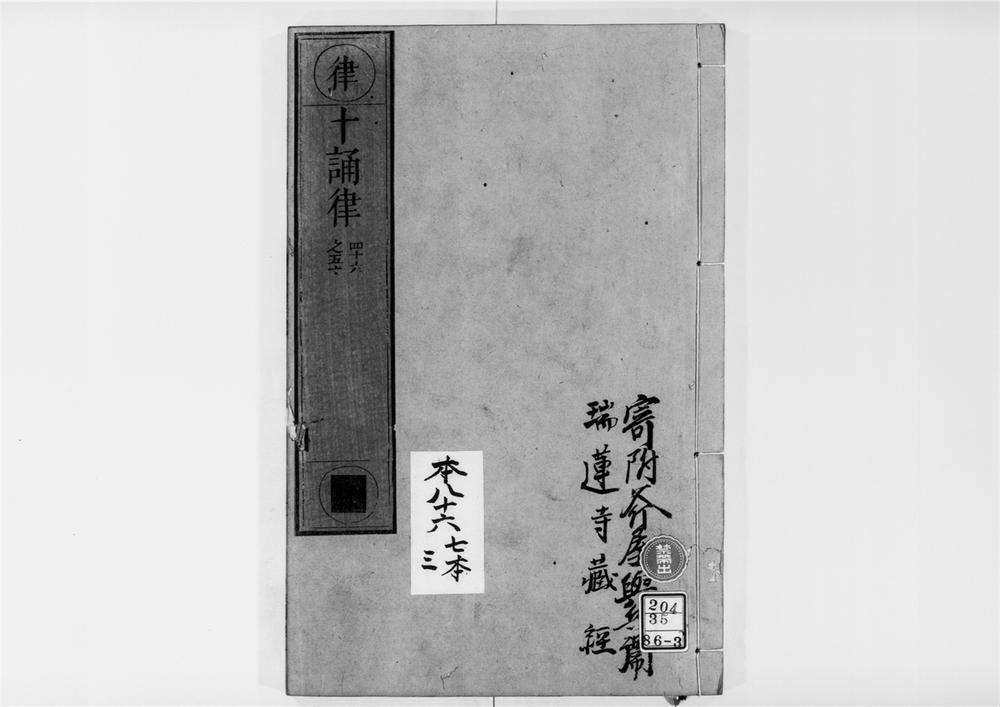 律
十誦律
四十六
之五六
寄附芥屋
瑞蓮寺藏經
本八十六
七本
三
禁帶出
204
35
86-3